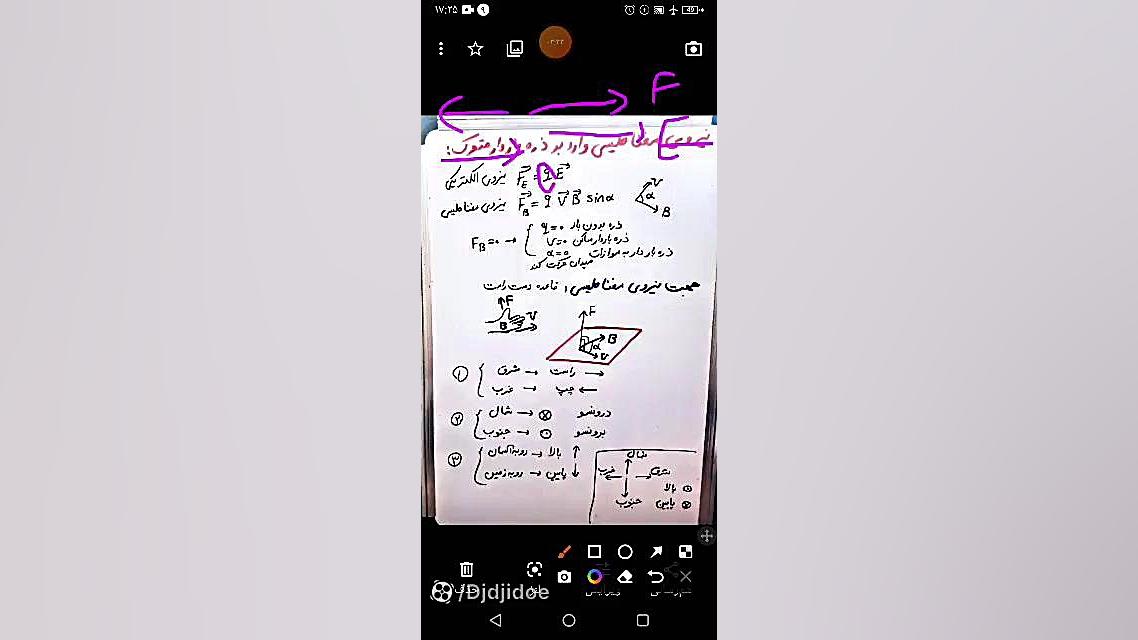 ۱۷:۲۵
49
F
نیروی مغناطیسی وارد بر ذره باردار متحرک:
نیروی الکتریکی F_E = qE
نیروی مغناطیسی F_B = q V B sinα
V
α
B
F_B = ۰ → ذره بدون بار q = ۰
ذره باردار ساکن V = ۰
ذره باردار به موازات α = ۰
میدان حرکت کند
جهت نیروی مغناطیسی: قاعده دست راست
F
V
B
F
B
α
V
۱ شرق ← راست →
غرب ← چپ ←
۲ شمال → ⊗ درونسو
جنوب → ⊙ برونسو
۳ روبه آسمان ← بالا ↑
روبه زمین ← پایین ↓
شمال
غرب شرق
جنوب
⊙ بالا
⊗ پایین
/Djdjidoe